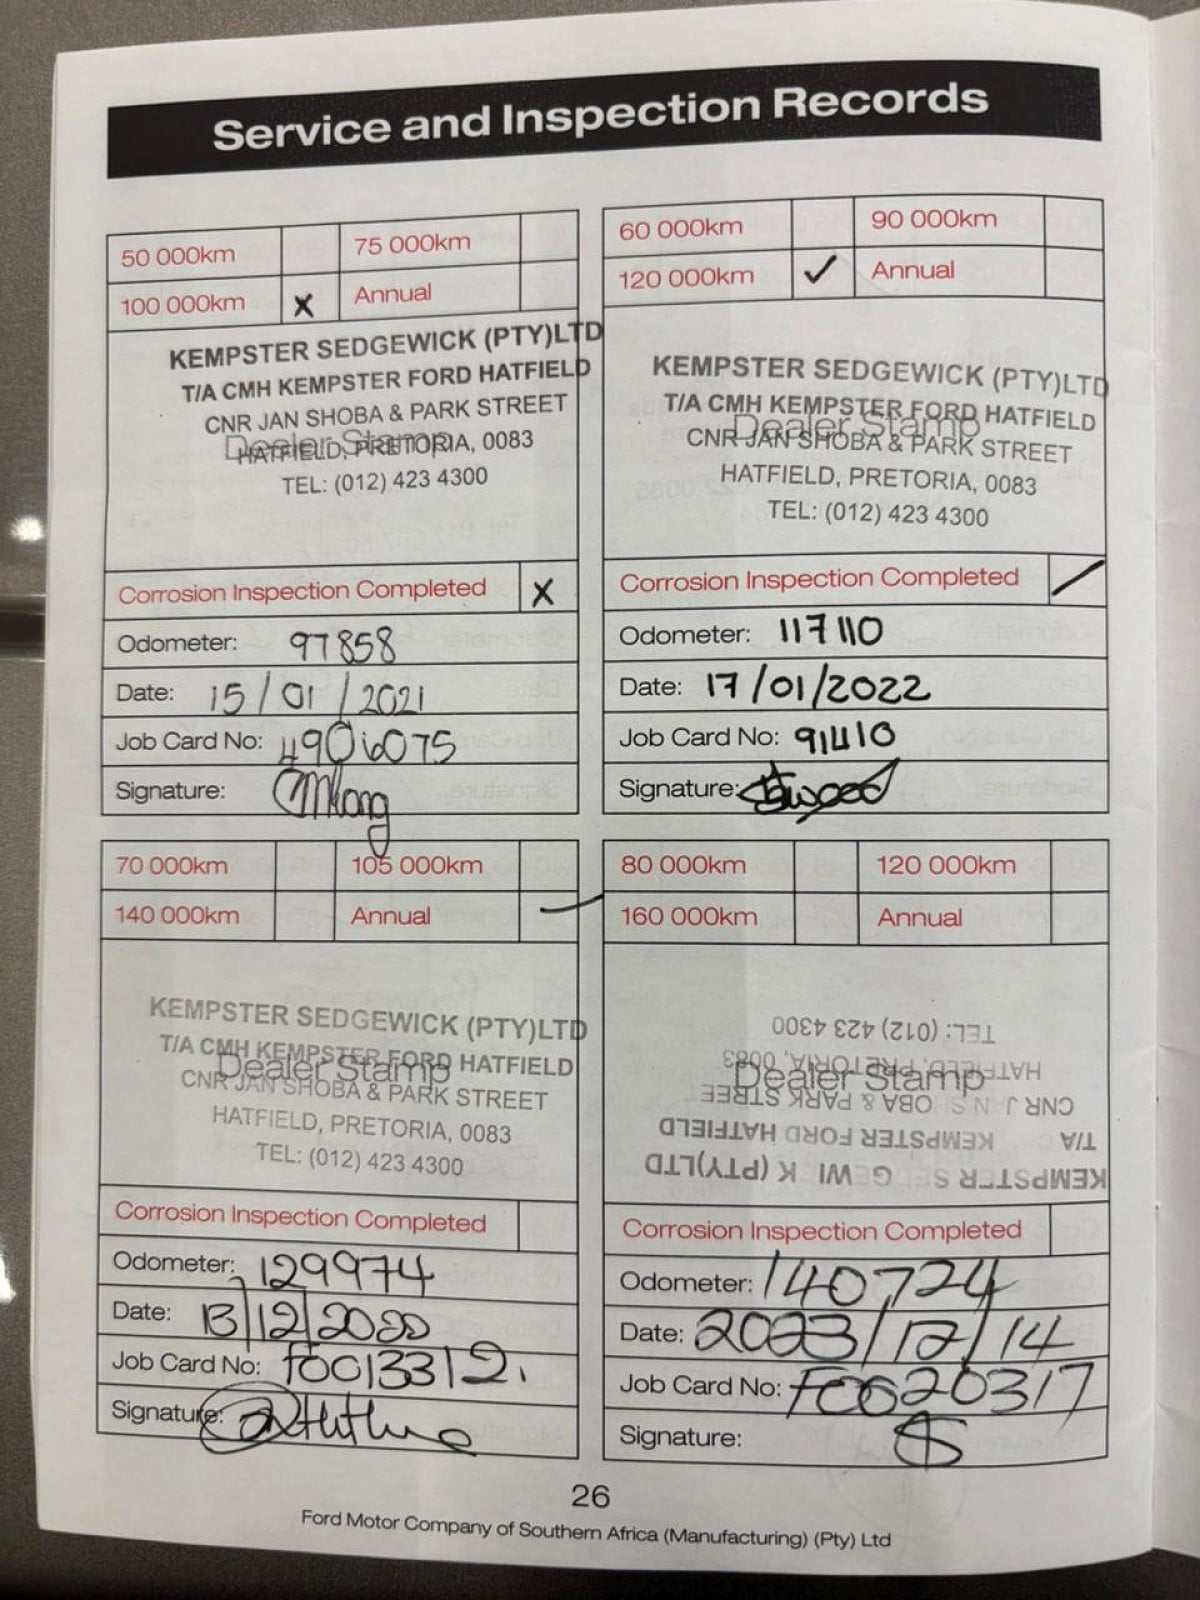 Service and Inspection Records
50 000km 75 000km
100 000km X Annual
KEMPSTER SEDGEWICK (PTY)LTD
T/A CMH KEMPSTER FORD HATFIELD
CNR JAN SHOBA & PARK STREET
Dealer Stamp
HATFIELD, PRETORIA, 0083
TEL: (012) 423 4300
Corrosion Inspection Completed X
Odometer: 97858
Date: 15/01/2021
Job Card No: 4906075
Signature:
60 000km 90 000km
120 000km ✓ Annual
KEMPSTER SEDGEWICK (PTY)LTD
T/A CMH KEMPSTER FORD HATFIELD
Dealer Stamp
CNR JAN SHOBA & PARK STREET
HATFIELD, PRETORIA, 0083
TEL: (012) 423 4300
Corrosion Inspection Completed
Odometer: 117110
Date: 17/01/2022
Job Card No:
Signature:
70 000km 105 000km
140 000km Annual
KEMPSTER SEDGEWICK (PTY)LTD
T/A CMH KEMPSTER FORD HATFIELD
Dealer Stamp
CNR JAN SHOBA & PARK STREET
HATFIELD, PRETORIA, 0083
TEL: (012) 423 4300
Corrosion Inspection Completed
Odometer: 129974
Date: 13/12/2020
Job Card No: f0013312.
Signature:
80 000km 120 000km
160 000km Annual
TEL: (012) 423 4300
HATFIELD, PRETORIA, 0083
Dealer Stamp
CNR J N S OBA & PARK STREE
T/A C KEMPSTER FORD HATFIELD
KEMPSTER S GEWI K (PTY)LTD
Corrosion Inspection Completed
Odometer: 140724
Date: 2023/12/14
Job Card No: FC020317
Signature:
26
Ford Motor Company of Southern Africa (Manufacturing) (Pty) Ltd